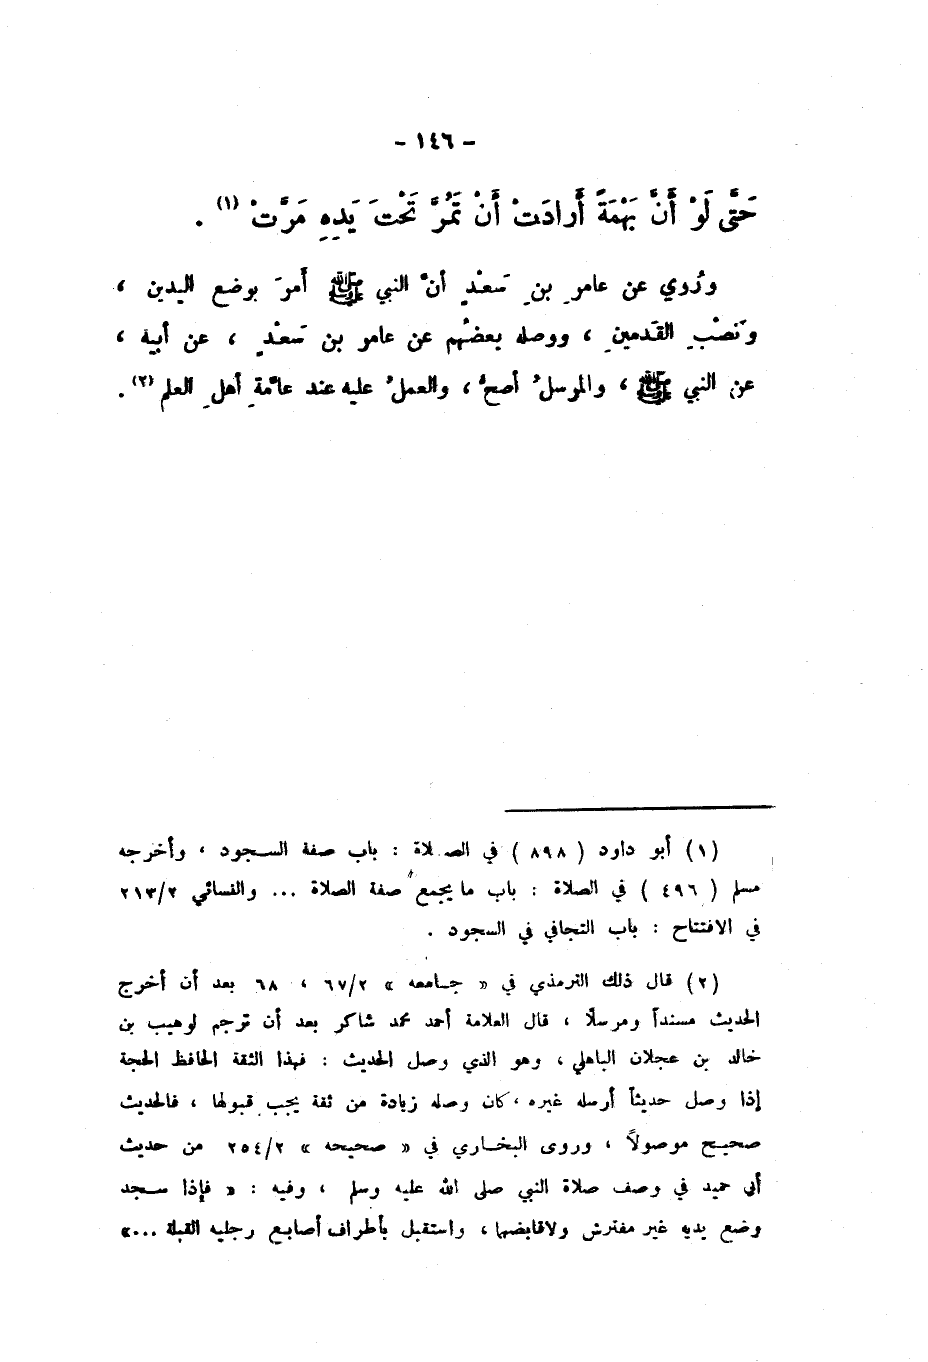 - ١٤٦ -
حَتَّى لَوْ أَنَّ بَهْمَةً أَرادَتْ أَنْ تَمُرَّ تَحْتَ يَدِهِ مَرَّتْ (١) .
ورُوي عن عامرِ بنِ سَعْدٍ أنَّ النبي ﷺ أمرَ بوضع اليدين ،
ونَصْبِ القَدمينِ ، ووصله بعضُهم عن عامر بن سَعْدٍ ، عن أبيه ،
عن النبي ﷺ ، والمرسلُ أصحُّ ، والعملُ عليه عند عامَّةِ أهلِ العلم (٢) .
(١) أبو داود ( ٨٩٨ ) في الصلاة : باب صفة السجود ، وأخرجه
مسلم ( ٤٩٦ ) في الصلاة : باب ما يجمع صفة الصلاة ... والنسائي ٢١٣/٢
في الافتتاح : باب التجافي في السجود .
(٢) قال ذلك الترمذي في « جامعه » ٦٧/٢ ، ٦٨ بعد أن أخرج
الحديث مسنداً ومرسلًا ، قال العلامة أحمد محمد شاكر بعد أن ترجم لوهيب بن
خالد بن عجلان الباهلي ، وهو الذي وصل الحديث : فهذا الثقة الحافظ الحجة
إذا وصل حديثاً أرسله غيره ، كان وصله زيادة من ثقة يجب قبولها ، فالحديث
صحيح موصولاً ، وروى البخاري في « صحيحه » ٢٥٤/٢ من حديث
أبي حميد في وصف صلاة النبي صلى الله عليه وسلم ، وفيه : « فإذا سجد
وضع يديه غير مفترش ولا قابضهما ، واستقبل بأطراف أصابع رجليه القبلة ...»